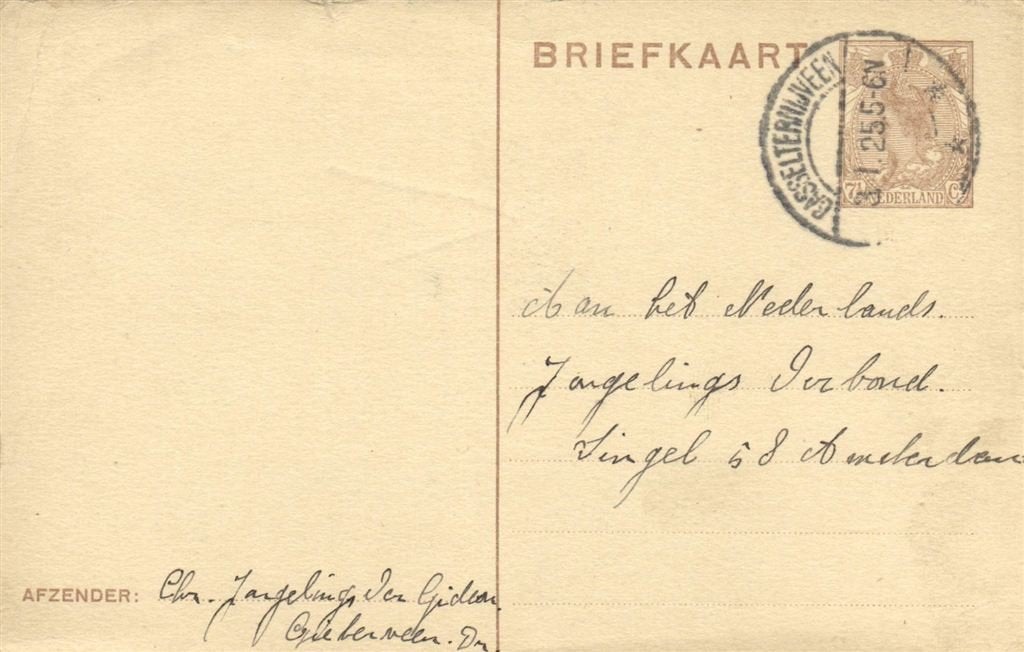 BRIEFKAART
GASSELTERNIJVEEN
1.25.5-6N
7½ NEDERLAND Ct
Aan het Nederlands.
Jongelings Verbond.
Singel 58 Amsterdam
AFZENDER: Chr. Jongelings Ver Gideon
Gieterveen. Dr